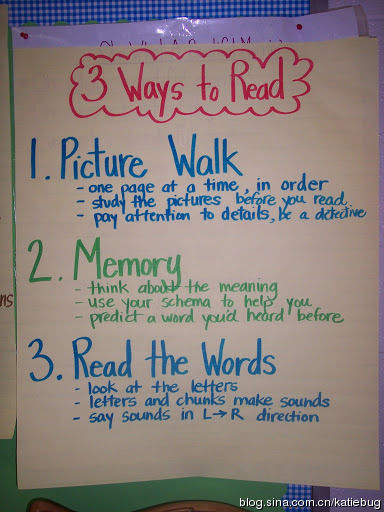 3 Ways to Read
1. Picture Walk
- one page at a time, in order
- study the pictures before you read
- pay attention to details, be a detective
2. Memory
- think about the meaning
- use your schema to help you
- predict a word you'd heard before
3. Read the Words
- look at the letters
- letters and chunks make sounds
- say sounds in L→R direction
ns
blog.sina.com.cn/katiebug